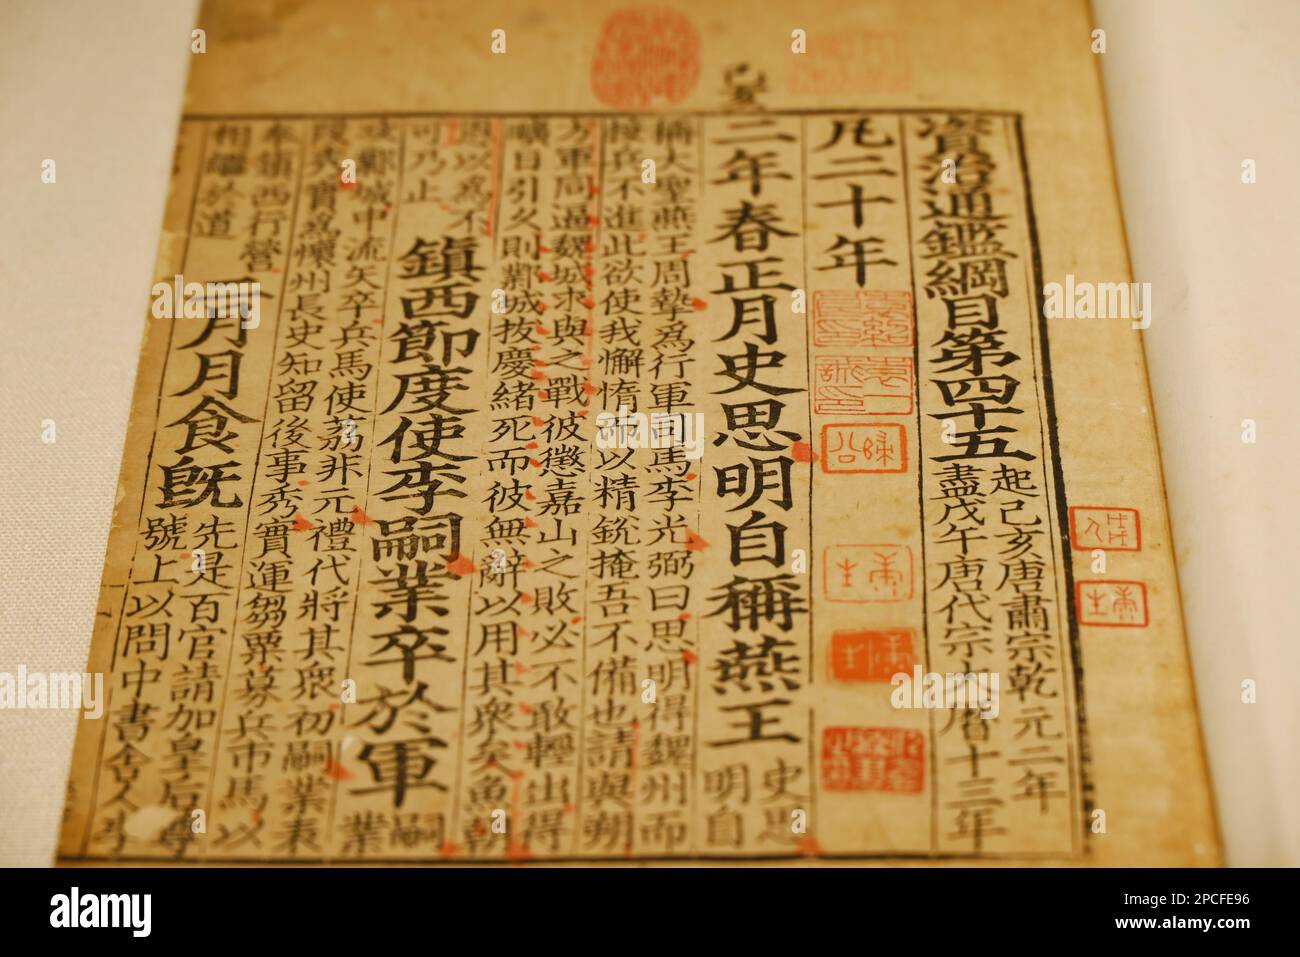 資治通鑑綱目第四十五
起己亥唐肅宗乾元二年
盡戊午唐代宗大曆十三年
凡二十年
己亥
二年春正月史思明自稱燕王
史思
明自
稱大聖燕王周摯爲行軍司馬李光弼曰思明得魏州而
按兵不進此欲使我懈惰而以精銳掩吾不備也請與朔
方軍同逼魏城求與之戰彼懲嘉山之敗必不敢輕出得
曠日引久則鄴城拔慶緒死而彼無辭以用其衆矣魚朝
恩以爲不
可乃止
鎮西節度使李嗣業卒於軍
嗣
業
攻鄴城中流矢卒兵馬使荔非元禮代將其衆初嗣業表
段秀實爲懷州長史知留後事秀實運芻粟募兵市馬以
奉鎮西行營
相繼於道
二月月食既
先是百官請加皇后尊
號上以問中書舍人李
alamy
Image ID: 2PCFE96
www.alamy.com